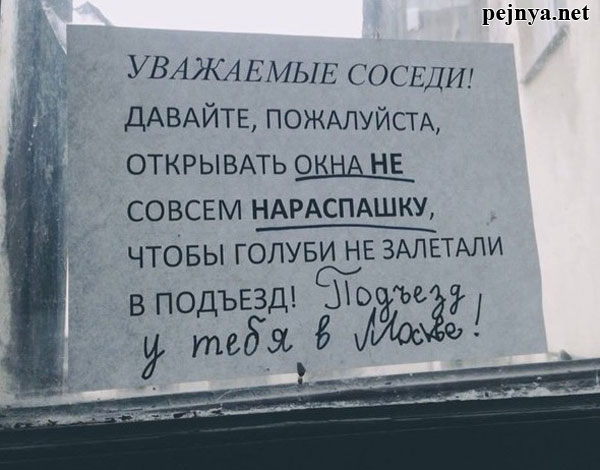 pejnya.net
УВАЖАЕМЫЕ СОСЕДИ!
ДАВАЙТЕ, ПОЖАЛУЙСТА,
ОТКРЫВАТЬ ОКНА НЕ
СОВСЕМ НАРАСПАШКУ,
ЧТОБЫ ГОЛУБИ НЕ ЗАЛЕТАЛИ
В ПОДЪЕЗД! Подъезд
у тебя в Москве!